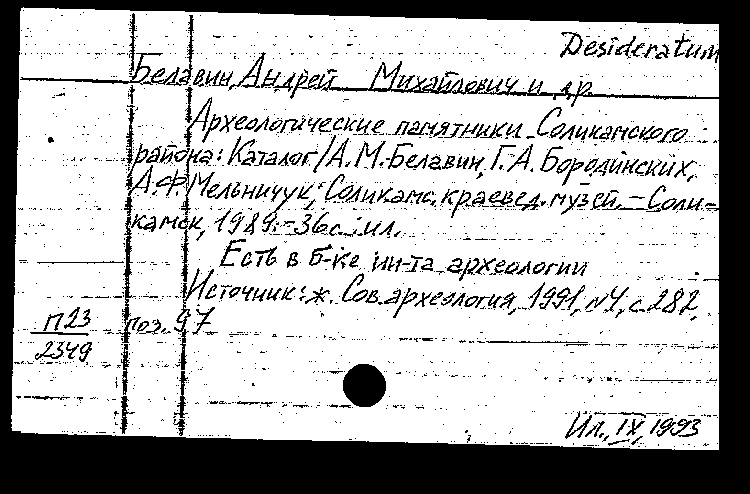 Desideratum
Белавин, Андрей Михайлович и др.
Археологические памятники Соликамского
района: Каталог / А.М. Белавин, Г.А. Бординских,
А.Ф. Мельничук; Соликамс. краевед. музей. – Соли-
камск, 1989. – 36 с.: ил.
Есть в б-ке ин-та археологии
Источник: ж. Сов. археология, 1991, №4, с. 282,
поз. 97
П23
2349
Ил., IX, 1993